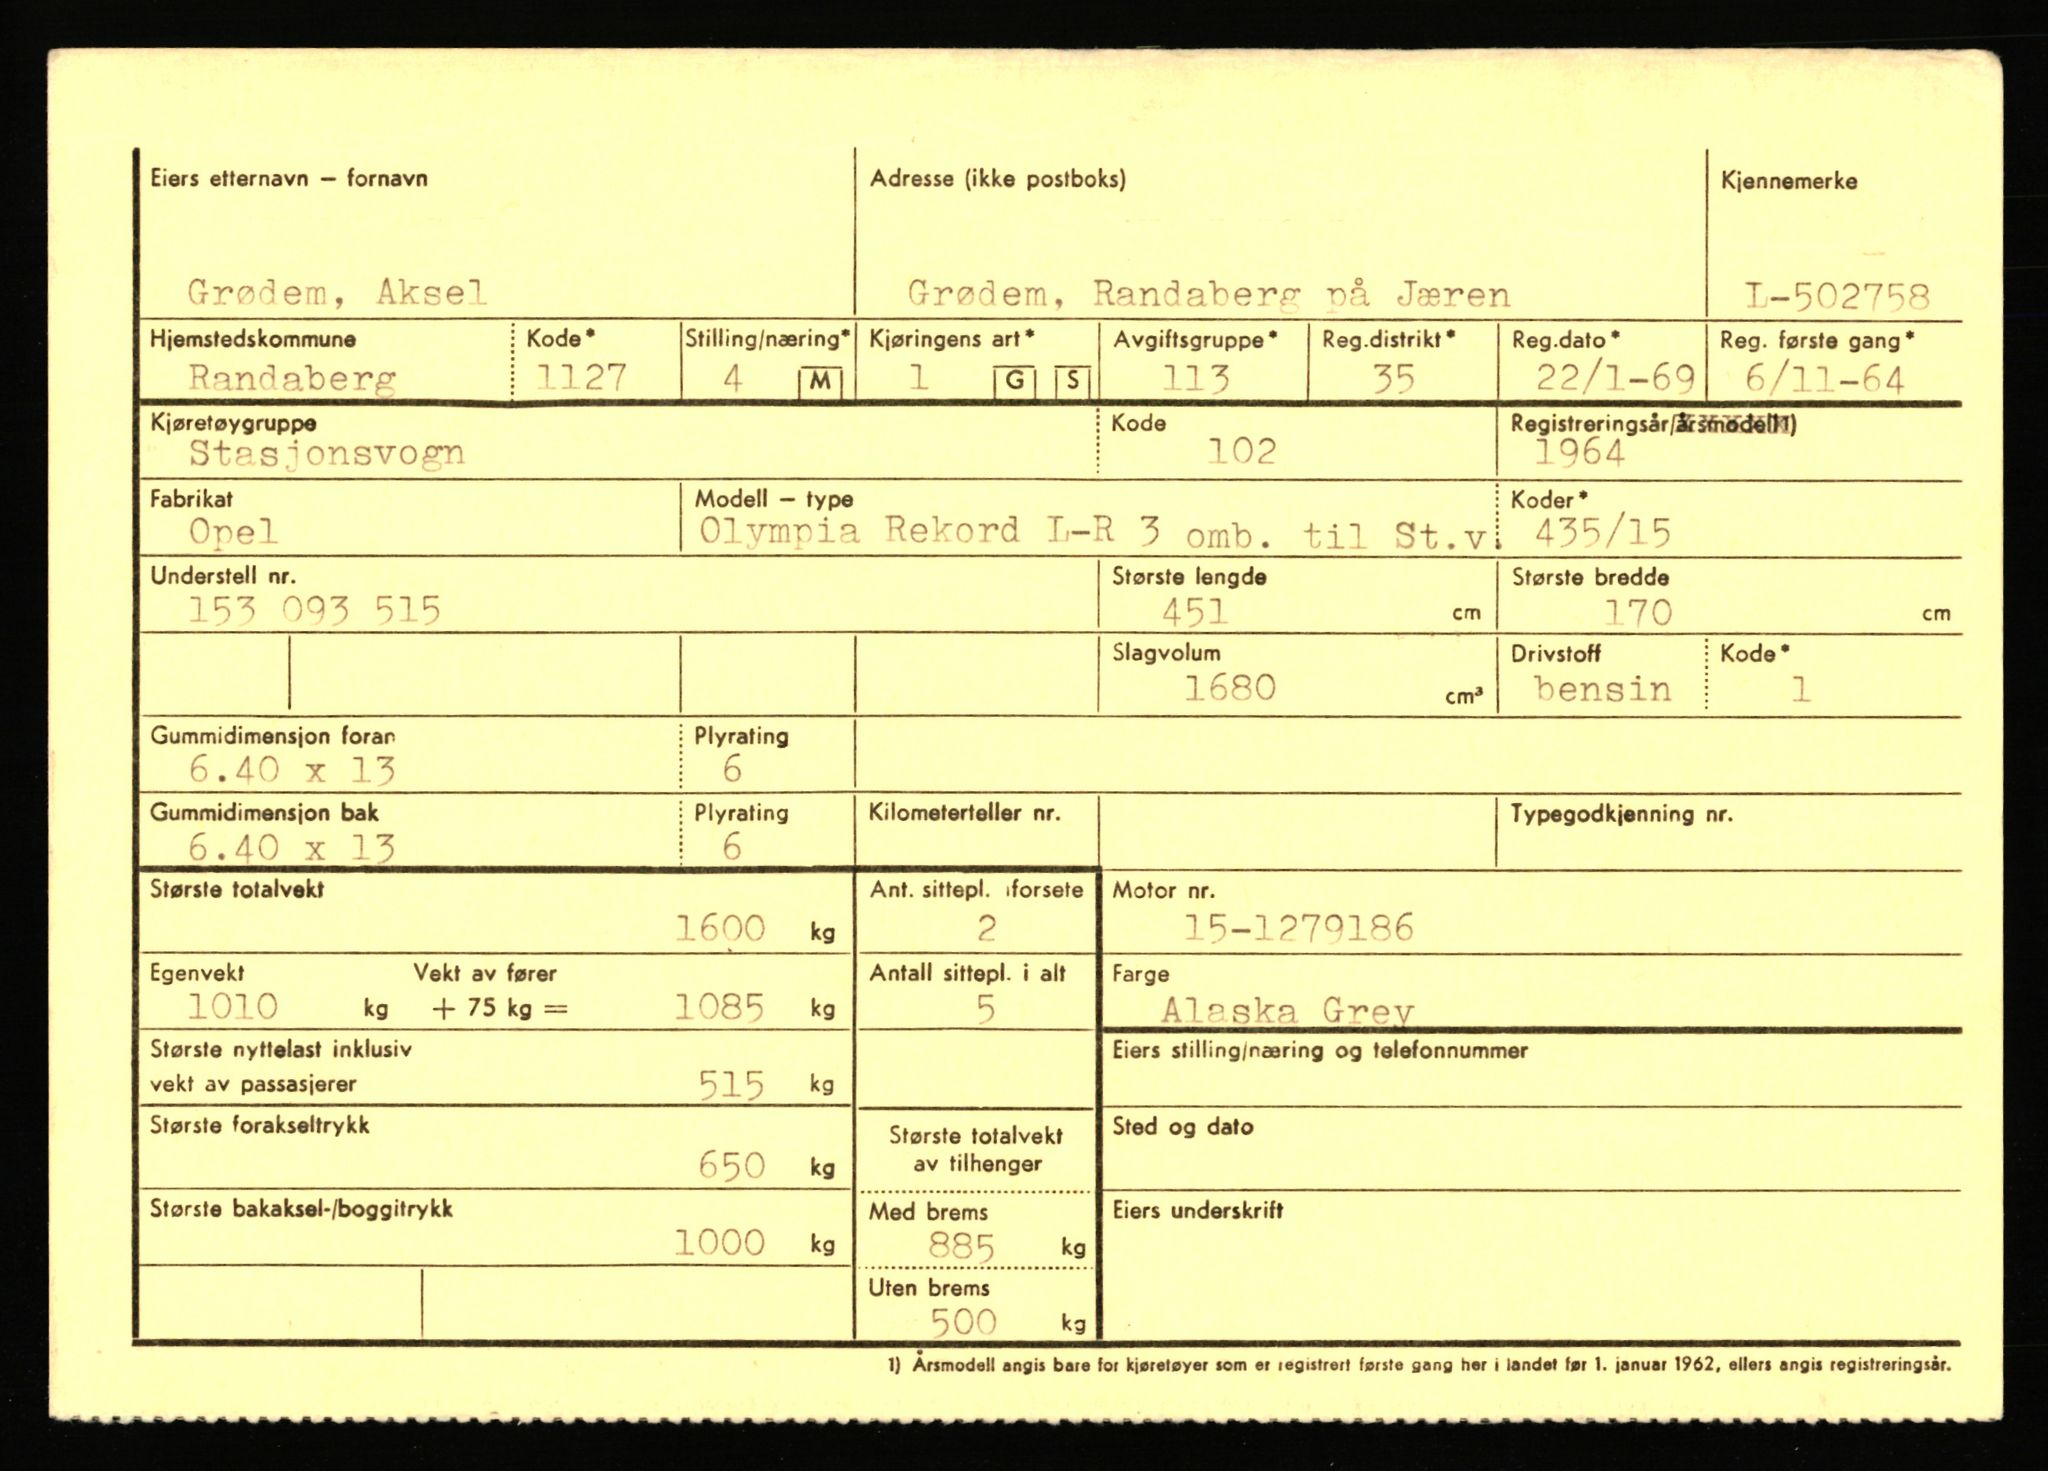 Eiers etternavn – fornavn   Adresse (ikke postboks)   Kjennemerke
Grødem, Aksel   Grødem, Randaberg på Jæren   L-502758
Hjemstedskommune   Kode*   Stilling/næring*   Kjøringens art*   Avgiftsgruppe*   Reg.distrikt*   Reg.dato*   Reg. første gang*
Randaberg   1127   4   M   1   G   S   113   35   22/1-69   6/11-64
Kjøretøygruppe   Kode   Registreringsår/årsmodell1)
Stasjonsvogn   102   1964
Fabrikat   Modell – type   Koder*
Opel   Olympia Rekord L-R 3 omb. til St.v.   435/15
Understell nr.   Største lengde   Største bredde
153 093 515   451 cm   170 cm
Slagvolum   Drivstoff   Kode*
1680 cm³   bensin   1
Gummidimensjon foran   Plyrating
6.40 x 13   6
Gummidimensjon bak   Plyrating   Kilometerteller nr.   Typegodkjenning nr.
6.40 x 13   6
Største totalvekt   Ant. sittepl. i forsete   Motor nr.
1600 kg   2   15-1279186
Egenvekt   Vekt av fører   Antall sittepl. i alt   Farge
1010 kg   + 75 kg =   1085 kg   5   Alaska Grey
Største nyttelast inklusiv   Eiers stilling/næring og telefonnummer
vekt av passasjerer   515 kg
Største forakseltrykk   Største totalvekt   Sted og dato
650 kg   av tilhenger
Største bakaksel-/boggitrykk   Med brems   Eiers underskrift
1000 kg   885 kg
Uten brems
500 kg
1) Årsmodell angis bare for kjøretøyer som er registrert første gang her i landet før 1. januar 1962, ellers angis registreringsår.